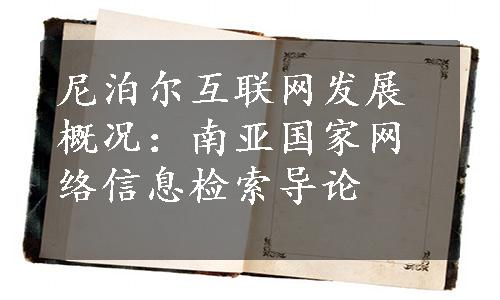 尼泊尔互联网发展
概况：南亚国家网
络信息检索导论